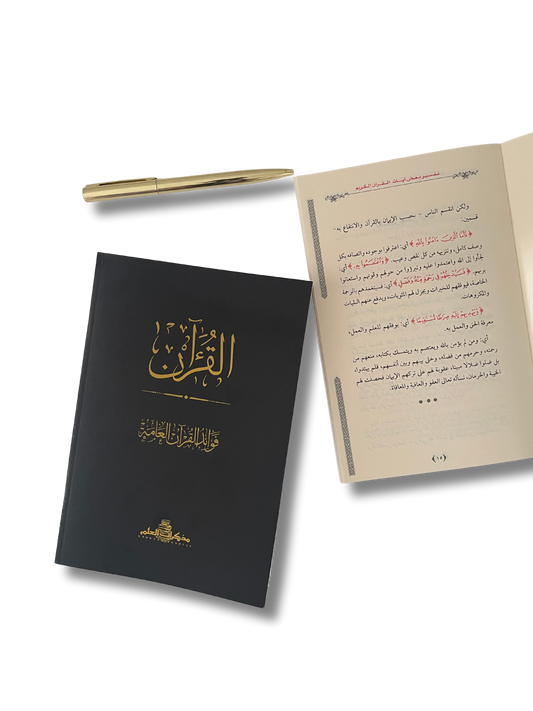 القُرآن
فَوَائِد القُرْآن العَامَّة
مذكرات العلم
تفسير بعض آيات القرآن الكريم
ولكن انقسم الناس - بحسب الإيمان بالقرآن والانتفاع به -
قسمين:
﴿فَأَمَّا الَّذِينَ ءَامَنُوا بِاللَّهِ﴾ أي: اعترفوا بوجوده واتصافه بكل
وصف كامل، وتنزيهه من كل نقص وعيب. ﴿وَاعْتَصَمُوا بِهِ﴾ أي:
لجأوا إلى الله واعتمدوا عليه وتبرؤوا من حولهم وقوتهم واستعانوا
بربهم. ﴿فَسَيُدْخِلُهُمْ فِي رَحْمَةٍ مِنْهُ وَفَضْلٍ﴾ أي: فسيتغمدهم بالرحمة
الخاصة، فيوفقهم للخيرات ويجزل لهم المثوبات، ويدفع عنهم البليات
والمكروهات.
﴿وَيَهْدِيهِمْ إِلَيْهِ صِرَاطًا مُسْتَقِيمًا﴾ أي: يوفقهم للعلم والعمل،
معرفة الحق والعمل به.
أي: ومن لم يؤمن بالله ويعتصم به ويتمسك بكتابه، منعهم من
رحمته، وحرمهم من فضله، وخلى بينهم وبين أنفسهم، فلم يهتدوا،
بل ضلوا ضلالا مبينا، عقوبة لهم على تركهم الإيمان فحصلت لهم
الخيبة والحرمان، نسأله تعالى العفو والعافية والمعافاة.
﴿١٥﴾